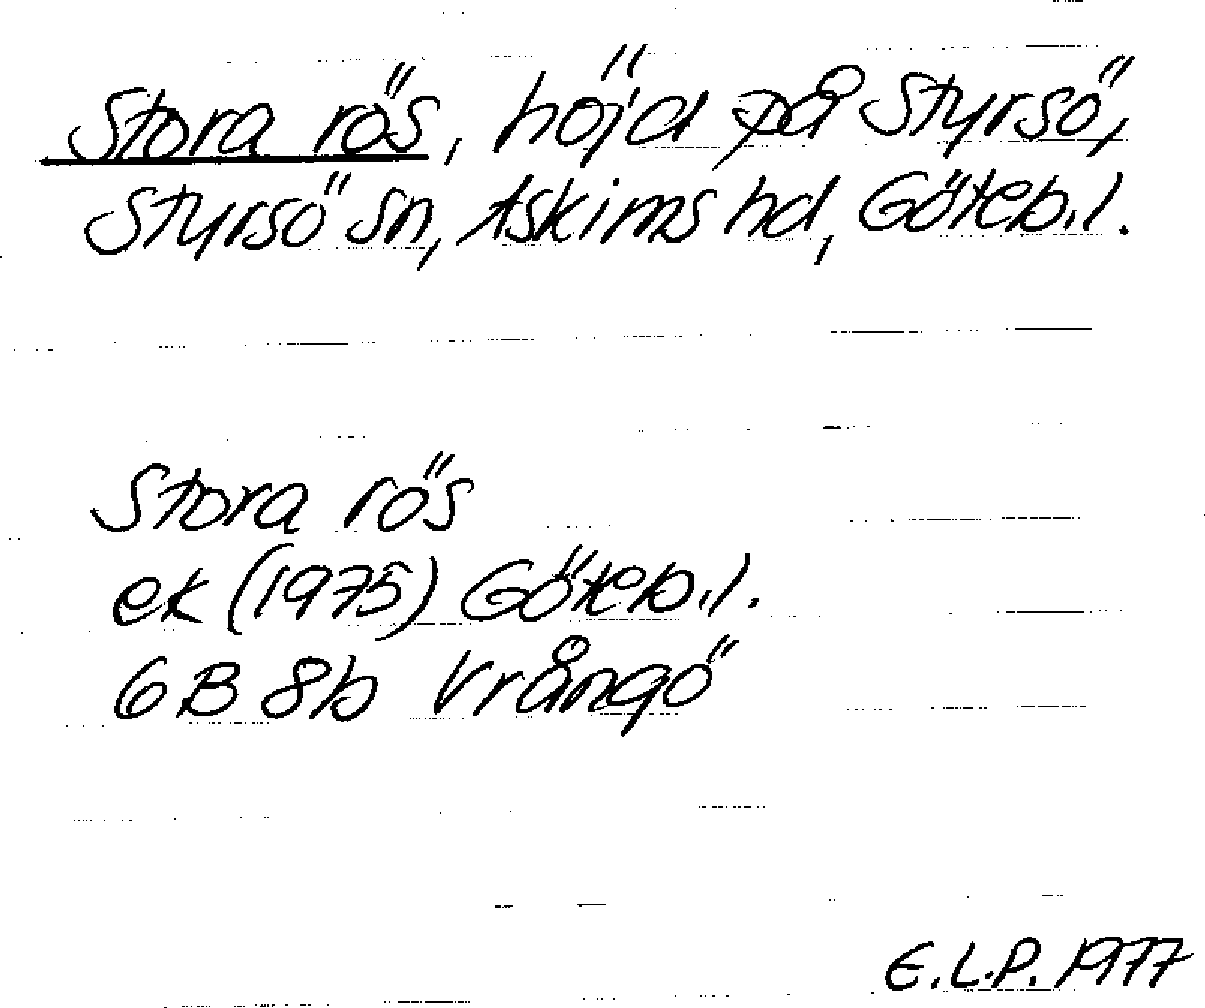 Stora rös, höjd på Styrsö,
Styrsö sn, Askims hd, Göteb.l.
Stora rös
ek (1975) Göteb.l.
6B 8b Vrångö
E.L.P. 1977